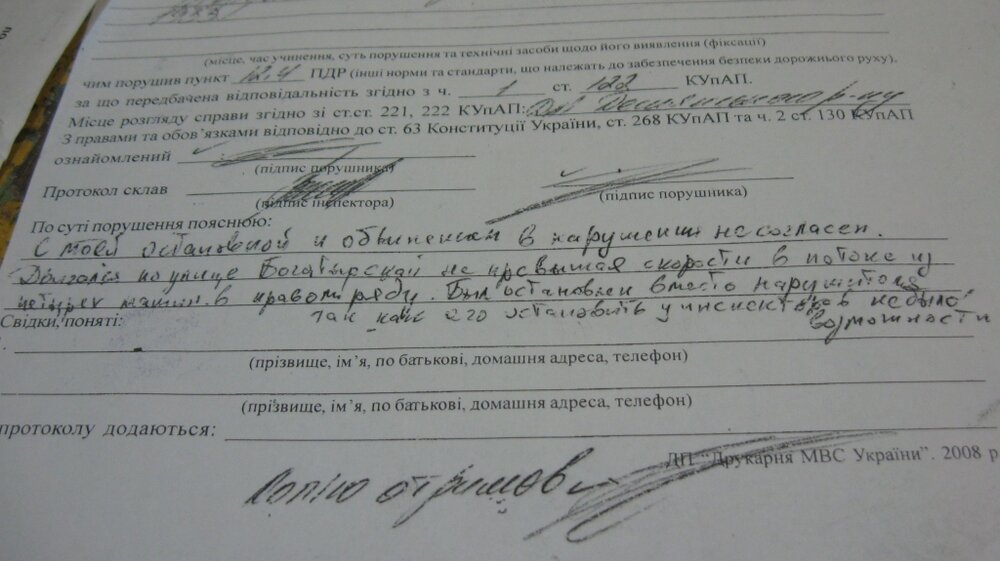 (місце, час учинення, суть порушення та технічні засоби щодо його виявлення (фіксації)
чим порушив пункт 12.4 ПДР (інші норми та стандарти, що належать до забезпечення безпеки дорожнього руху).
за що передбачена відповідальність згідно з ч. 1 ст. 122 КУпАП.
Місце розгляду справи згідно зі ст.ст. 221, 222 КУпАП:
З правами та обов’язками відповідно до ст. 63 Конституції України, ст. 268 КУпАП та ч. 2 ст. 130 КУпАП
ознайомлений
(підпис порушника)
Протокол склав
(підпис інспектора) (підпис порушника)
По суті порушення пояснюю:
С моей остановкой и обвинением в нарушении не согласен.
Двигался по улице Богатырской не превышая скорости в потоке из
четырех машин в правом ряду. Был остановлен вместо нарушителя
так как его остановить у инспекторов не было
возможности
Свідки, поняті:
(прізвище, ім’я, по батькові, домашня адреса, телефон)
(прізвище, ім’я, по батькові, домашня адреса, телефон)
протоколу додаються:
ДП “Друкарня МВС України”. 2008 р
Копію отримов